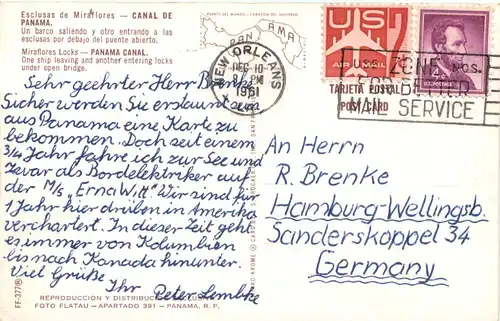 Esclusas de Miraflores — CANAL DE
PANAMA.
Un barco saliendo y otro entrando a las
esclusas por debajo del puente abierto.
Miraflores Locks — PANAMA CANAL.
One ship leaving and another entering locks
under open bridge.
PUENTE DEL MUNDO - CORAZON DEL UNIVERSO
PANAMA
NEW ORLEANS
DEC 10
PM
1961
LA.
US
AIR MAIL
7¢
4¢
ZONE NOS.
MAIL SERVICE
TARJETA POSTAL
POST CARD
Sehr geehrter Herr Brenke
Sicher werden Sie erstaunt sein
aus Panama eine Karte zu
bekommen. Doch seit einem
3/4 Jahr fahre ich zur See und
zwar als Bordelektriker auf
der M/S „Erna Witt" Wir sind für
1 Jahr hier drüben in Amerika
verchartert. In dieser Zeit geht
es immer von Kolumbien
bis nach Kanada hinunter.
Viel Grüße
Ihr Peter Lembke
An Herrn
R. Brenke
Hamburg-Wellingsb.
Sanderskoppel 34
Germany
REPRODUCCION Y DISTRIBUCION EXCLUSIVA
FOTO FLATAU — APARTADO 391 — PANAMA, R. P.
FF-377